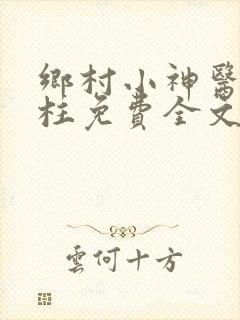 鄉村小神醫
枉免費全文
雲何十方